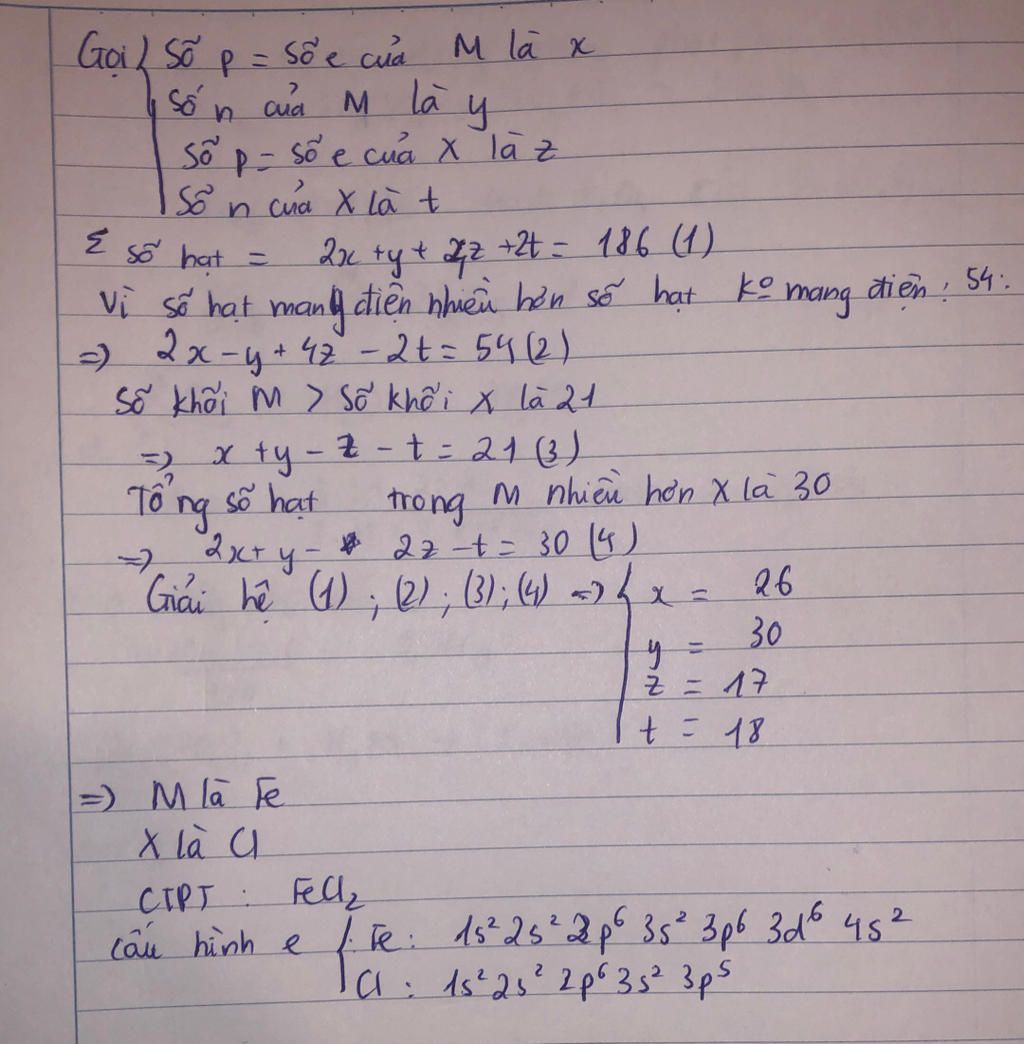 Gọi { Số p = Số e của M là x
Số n của M là y
Số p = Số e của X là z
Số n của X là t
Σ số hạt = 2x + y + 4z + 2t = 186 (1)
Vì số hạt mang điện nhiều hơn số hạt kº mang điện : 54 :
=> 2x - y + 4z - 2t = 54 (2)
Số khối M > Số khối X là 21
=> x + y - z - t = 21 (3)
Tổng số hạt trong M nhiều hơn X là 30
=> 2x + y - 2z - t = 30 (4)
Giải hệ (1) ; (2) ; (3) ; (4) => { x = 26
y = 30
z = 17
t = 18
=> M là Fe
X là Cl
CTPT : FeCl₂
cấu hình e { Fe : 1s² 2s² 2p⁶ 3s² 3p⁶ 3d⁶ 4s²
Cl : 1s² 2s² 2p⁶ 3s² 3p⁵